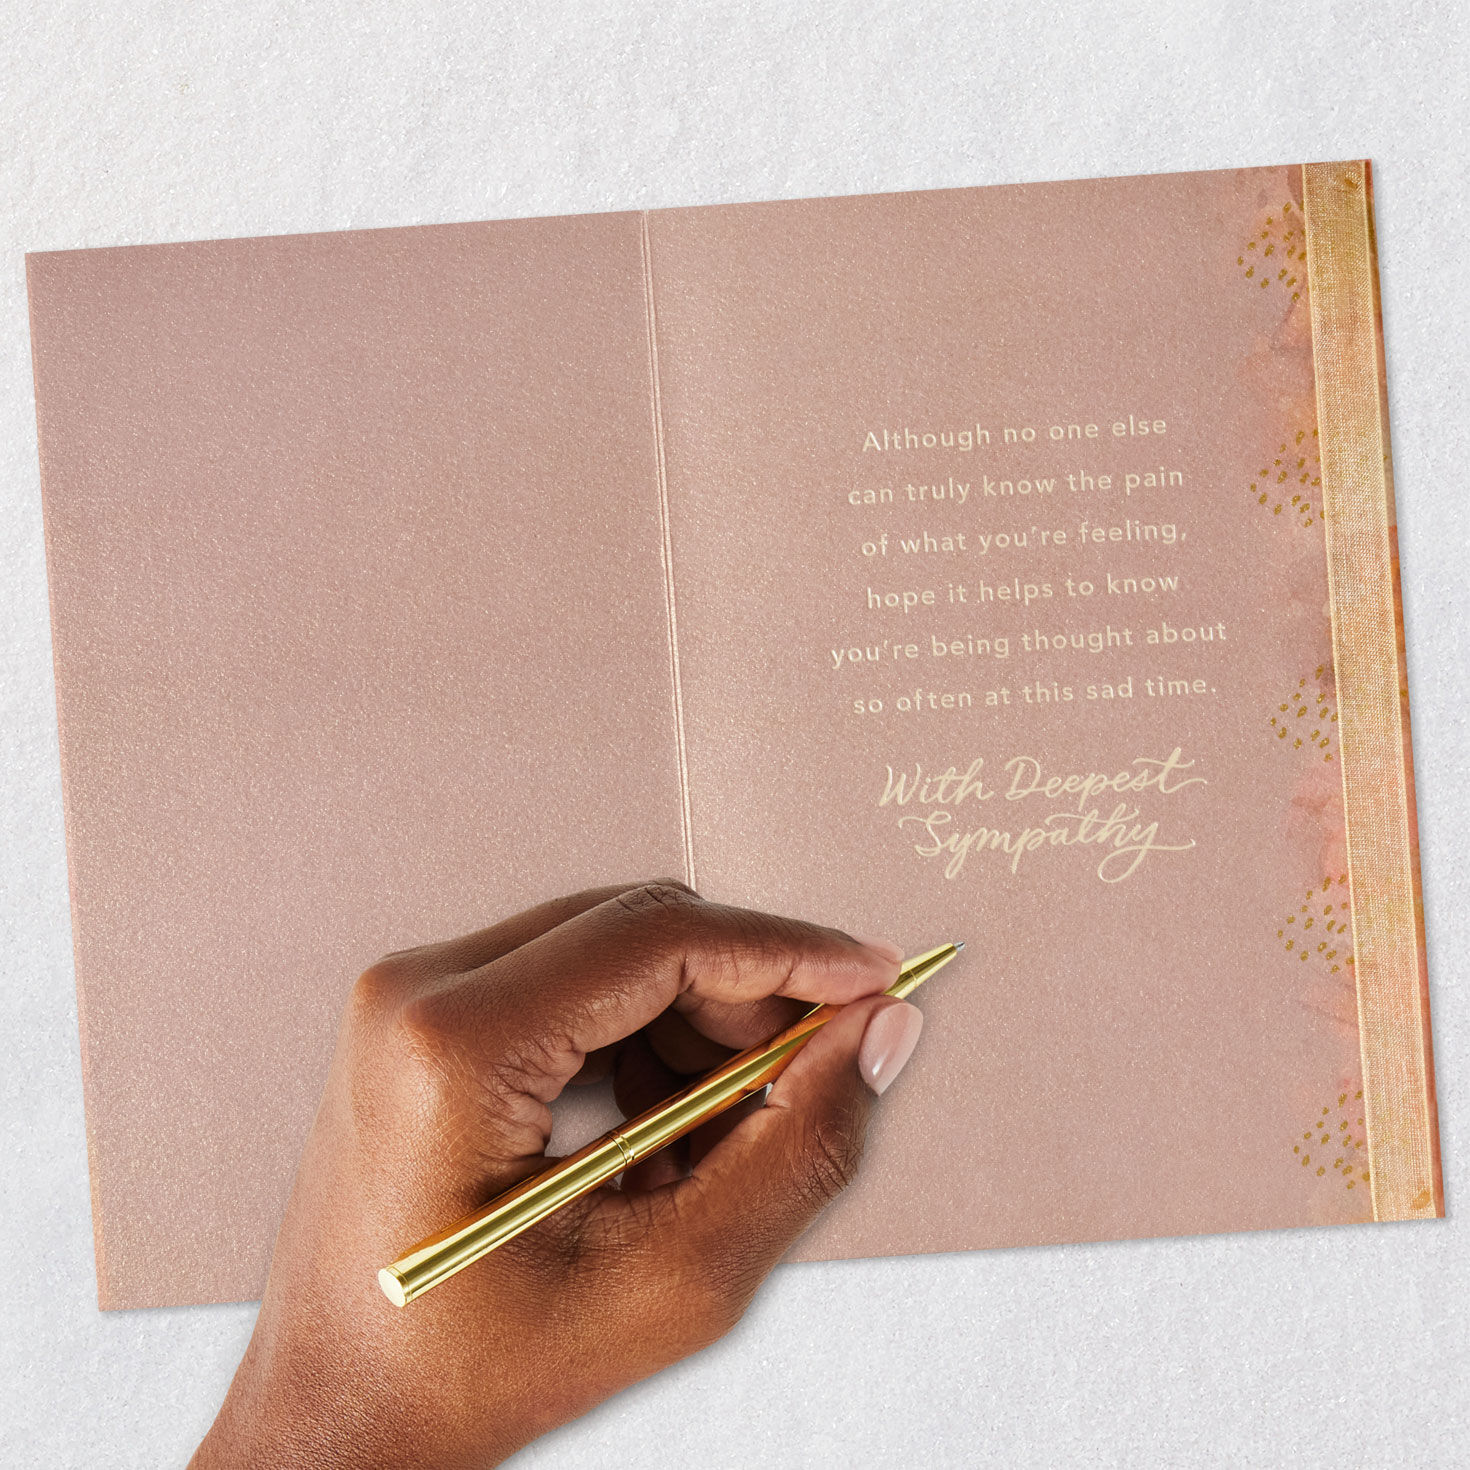 Although no one else
can truly know the pain
of what you're feeling,
hope it helps to know
you're being thought about
so often at this sad time.
With Deepest
Sympathy